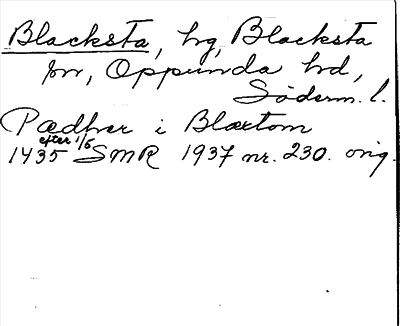 Blacksta, hg, Blacksta
sn, Oppunda hd,
Söderm. l.
Pædher i Blaxtom
efter 1/6
1435 SMR 1937 nr. 230. orig.